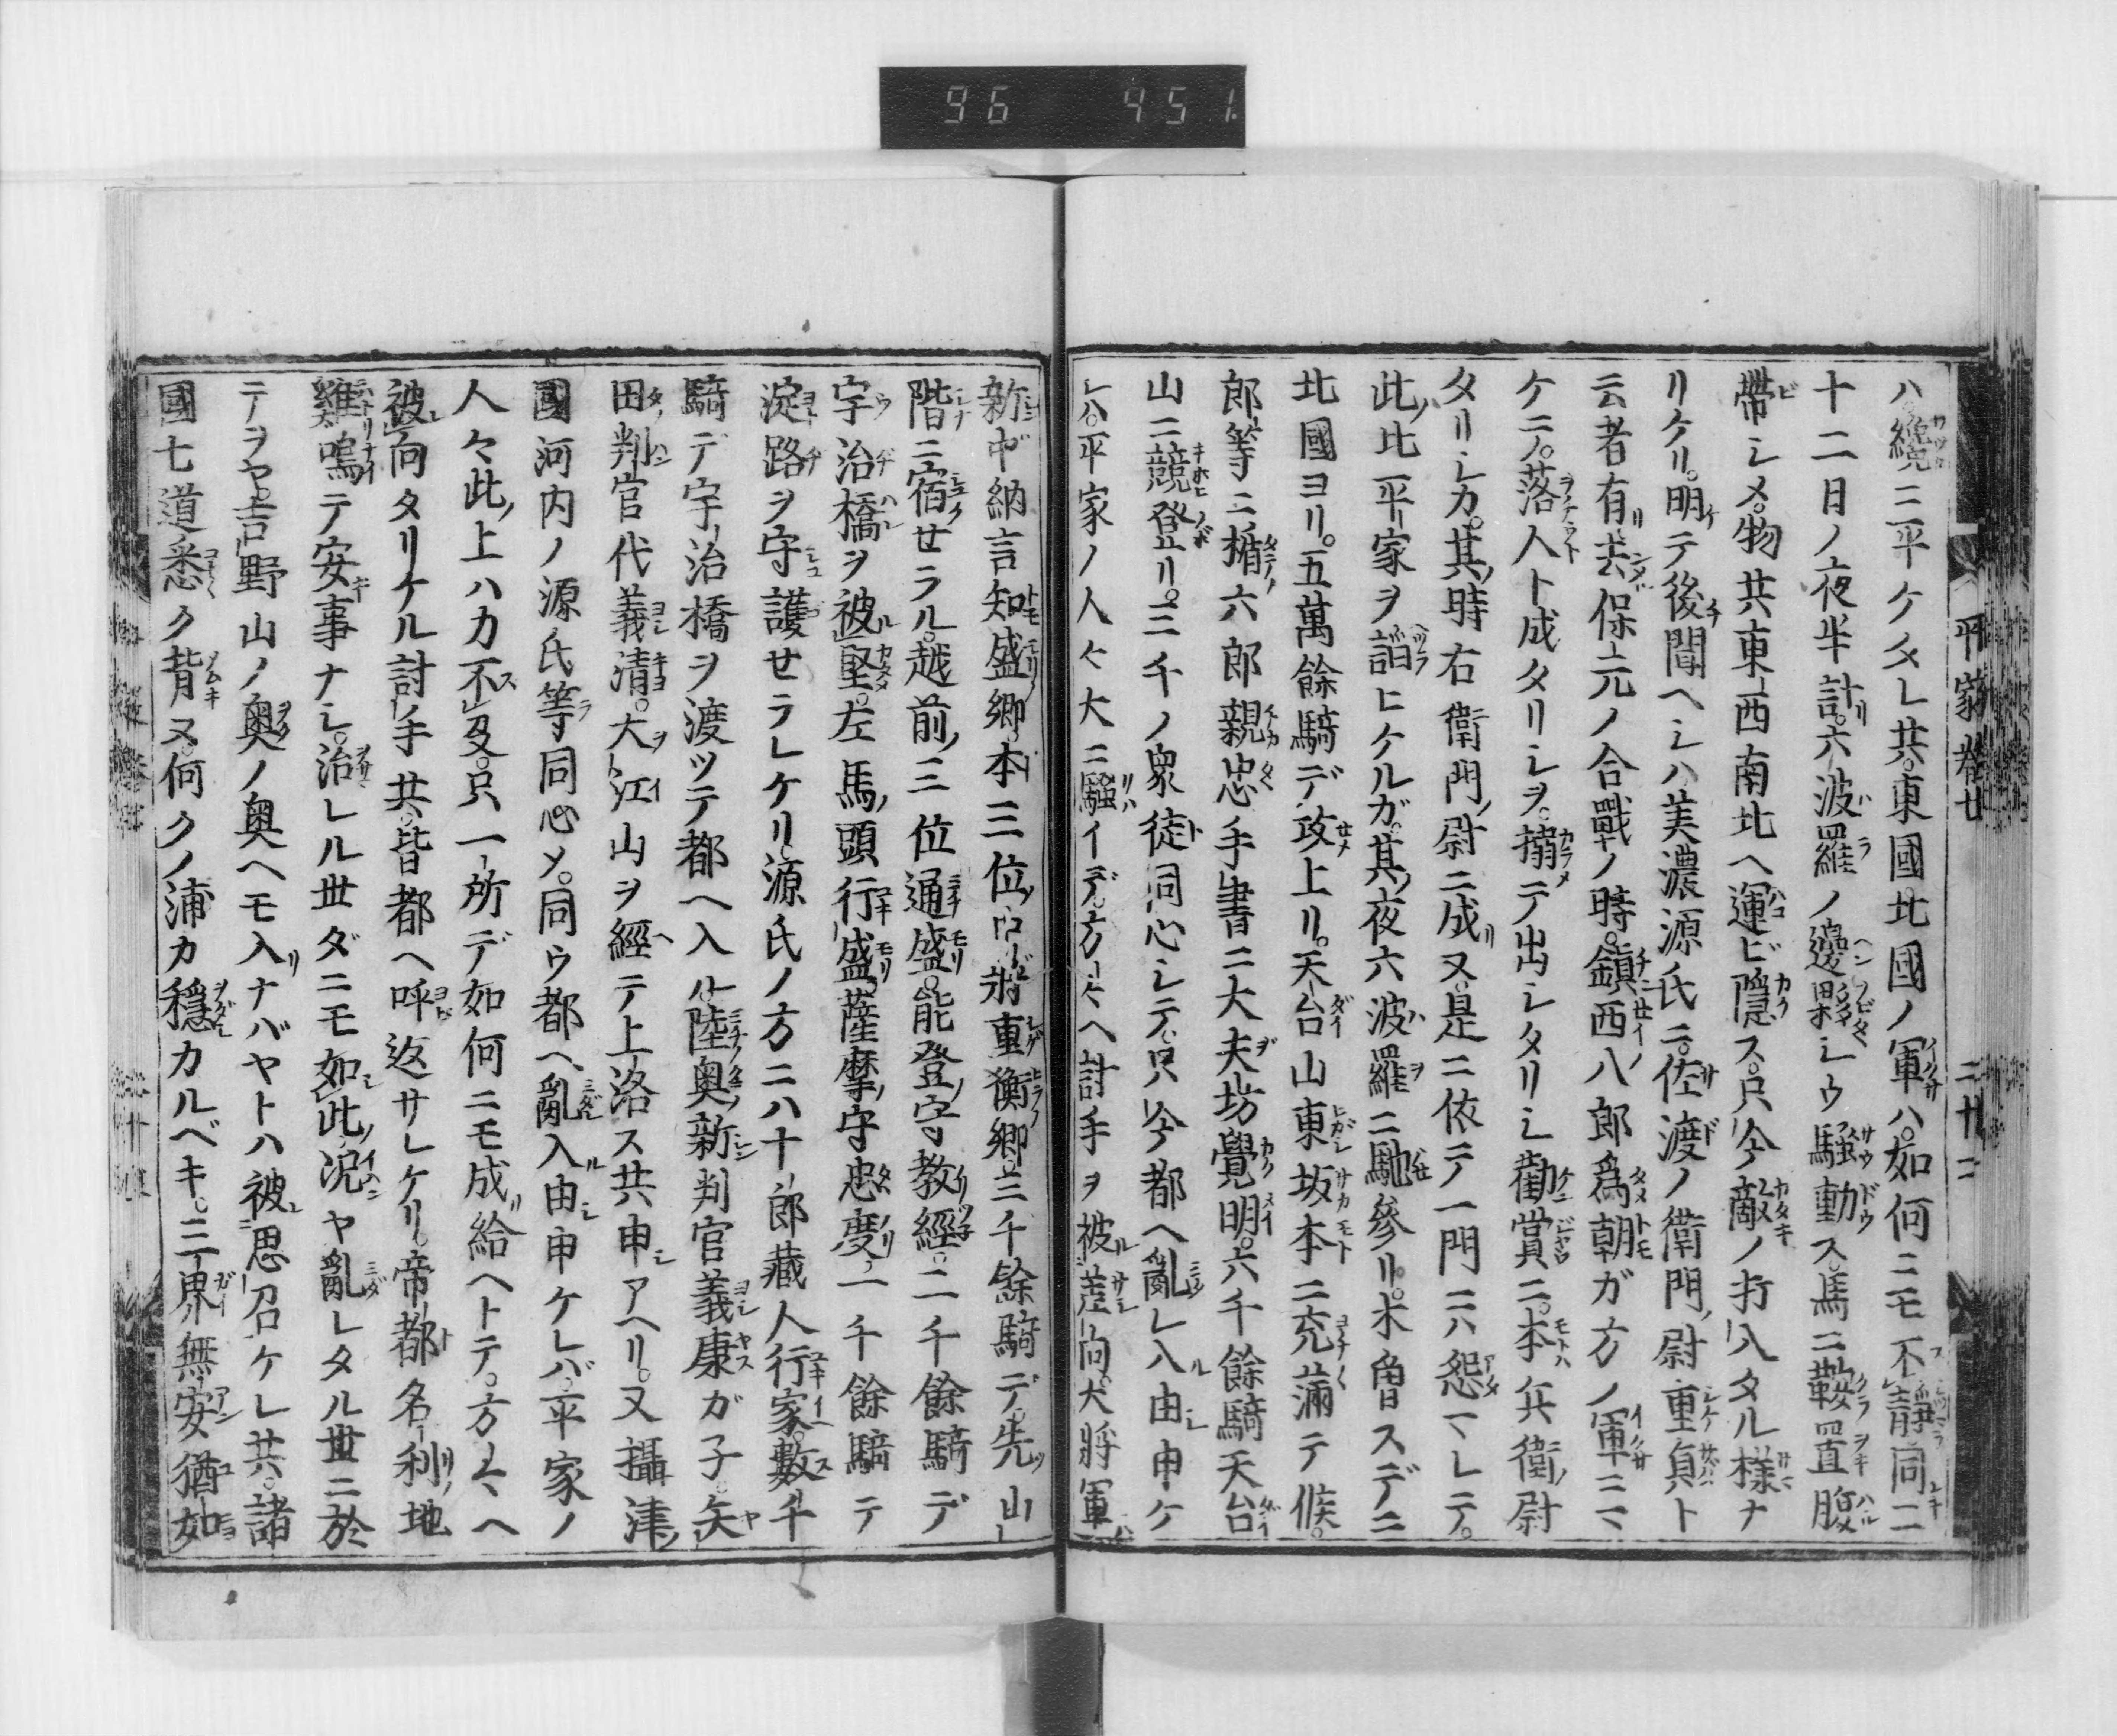 96 451.
平家巻七 二十二
ハ纔ニ平ケタレ共。東國北國ノ軍ハ。如何ニモ不静。同二
十二日ノ夜半計。六波羅ノ邊夥シウ騒動ス。馬ニ鞍置腹
帶シメ。物共東西南北ヘ運ビ隠ス。只今敵ノ打入タル様ナ
リケリ。明テ後聞ヘシハ美濃源氏ニ。佐渡ノ衛門ノ尉重貞ト
云者有。去保元ノ合戰ノ時。鎮西ノ八郎爲朝ガ方ノ軍ニマ
ケテ。落人ト成タリシヲ。搦テ出シタリシ勸賞ニ。本ハ兵衛ノ尉
タリシカ。其ノ時右衛門ノ尉ニ成リヌ。是ニ依テ一門ニハ怨マレテ。
此ノ比平家ヲ諂ヒケルガ。其ノ夜六波羅ニ馳參リ。木曽スデニ
北國ヨリ。五萬餘騎デ攻上リ。天台山東坂本ニ充滿テ候。
郎等ニ楯ノ六郎親忠。手書ニ大夫坊覺明。六千餘騎天台
山ニ競登リ。三千ノ衆徒同心シテ。只今都ヘ亂レ入由申ケ
レハ。平家ノ人々大ニ騒イデ。方々ヘ討手ヲ被差向。大將軍ニハ
新中納言知盛卿。本三位ノ中將重衡卿。三千餘騎デ。先ツ山
階ニ宿セラル。越前ノ三位通盛。能登ノ守教經。二千餘騎デ
宇治橋ヲ被堅。左馬ノ頭行盛。薩摩ノ守忠度。一千餘騎テ
淀路ヲ守護セラレケリ。源氏ノ方ニハ十郎藏人行家。數千
騎デ宇治橋ヲ渡ツテ都ヘ入ル。陸奥ノ新判官義康ガ子。矢
田ノ判官代義清。大江山ヲ經テ上洛ス共申シアヘリ。又攝津ノ
國河内ノ源氏等同心メ。同ウ都ヘ亂入由申ケレバ。平家ノ
人々此ノ上ハカ不及。只一所デ如何ニモ成給ヘトテ。方々ヘ
被向タリケル討手共。皆都ヘ呼返サレケリ。帝都名利ノ地
雞鳴テ安事ナシ。治レル世ダニモ如此。況ヤ亂レタル世ニ於
テヲヤ。吉野山ノ奥ノ奥ヘモ入ナバヤトハ被思召ケレ共。諸
國七道悉ク背ヌ。何クノ浦カ穩カルベキ。三界無安猶如